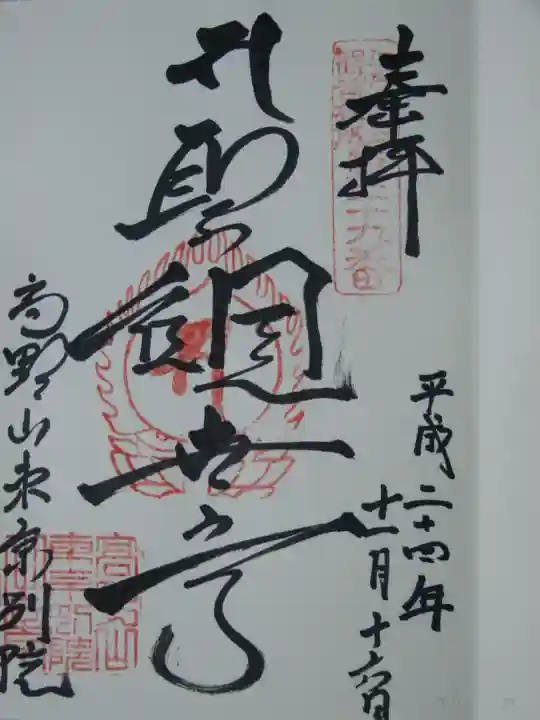 奉拝
平成二十四年
十一月十六日
聖観世音
高野山東京別院
高野山
東京別院